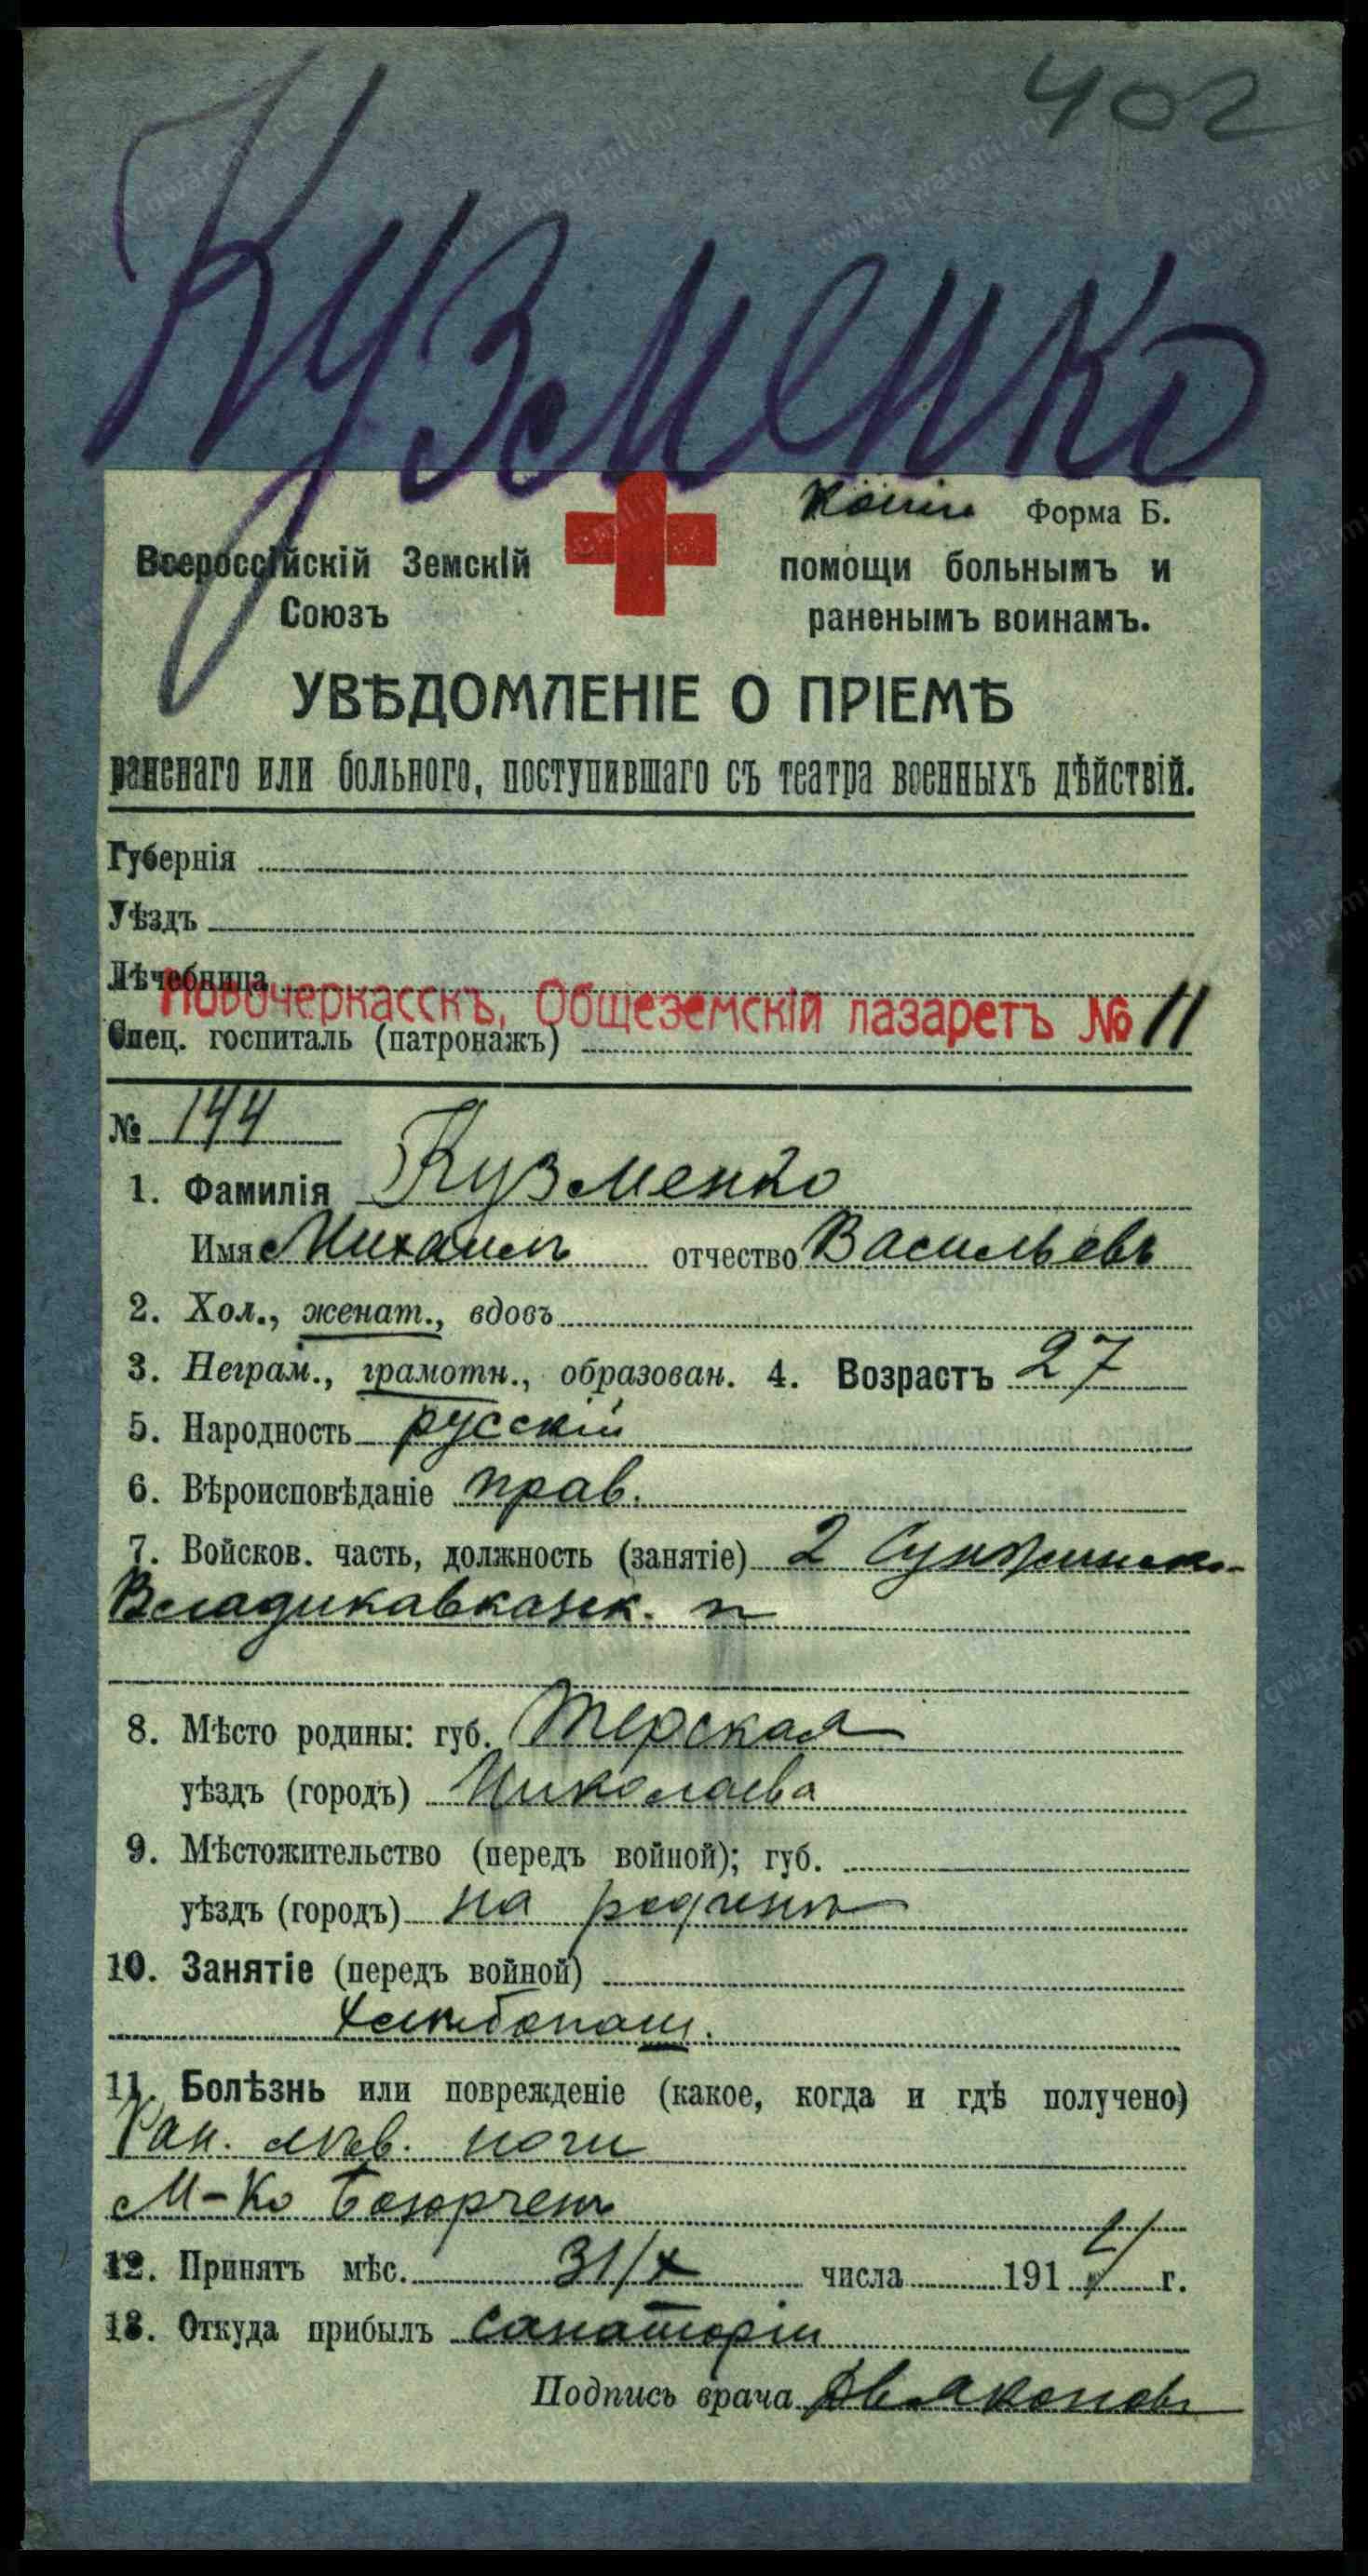 402
Кузменко
копія Форма Б.
Всероссійскій Земскій помощи больнымъ и
Союзъ раненымъ воинамъ.
УВѢДОМЛЕНІЕ О ПРІЕМѢ
раненаго или больного, поступившаго съ театра военныхъ дѣйствій.
Губернія
Уѣздъ
Лѣчебница
Новочеркасскъ, Общеземскій лазаретъ № 11
Спец. госпиталь (патронажъ)
№ 144
1. Фамилія Кузменко
Имя Михаилъ отчество Васильевъ
2. Хол., женат., вдовъ
3. Неграм., грамотн., образован. 4. Возрастъ 27
5. Народность русскій
6. Вѣроисповѣданіе прав.
7. Войсков. часть, должность (занятіе) 2 Сунженск.-
Владикавказск. п
8. Мѣсто родины: губ. Терская
уѣздъ (городъ) Николаева
9. Мѣстожительство (передъ войной); губ.
уѣздъ (городъ) на родинѣ
10. Занятіе (передъ войной)
хлѣбопаш.
11. Болѣзнь или поврежденіе (какое, когда и гдѣ получено)
Ран. лѣв. ноги
М-ко
12. Принятъ мѣс. 31/X числа 1914 г.
13. Откуда прибылъ санаторіи
Подпись врача Дьяконовъ